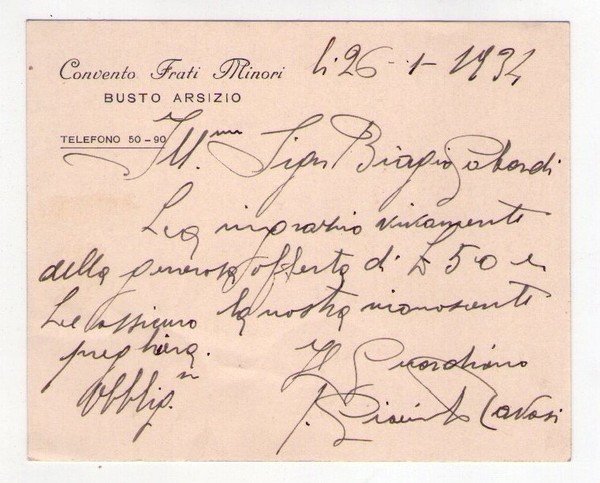 Convento Frati Minori
BUSTO ARSIZIO
TELEFONO 50-90
lì 26-1-1934
Ill.mo Sign Biagio Gabardi
La ringrazio vivamente
della generosa offerta di L 50 e
Le assicuro la nostra riconoscente
preghiera.
Il Guardiano
Obblig.
P. Ravasi